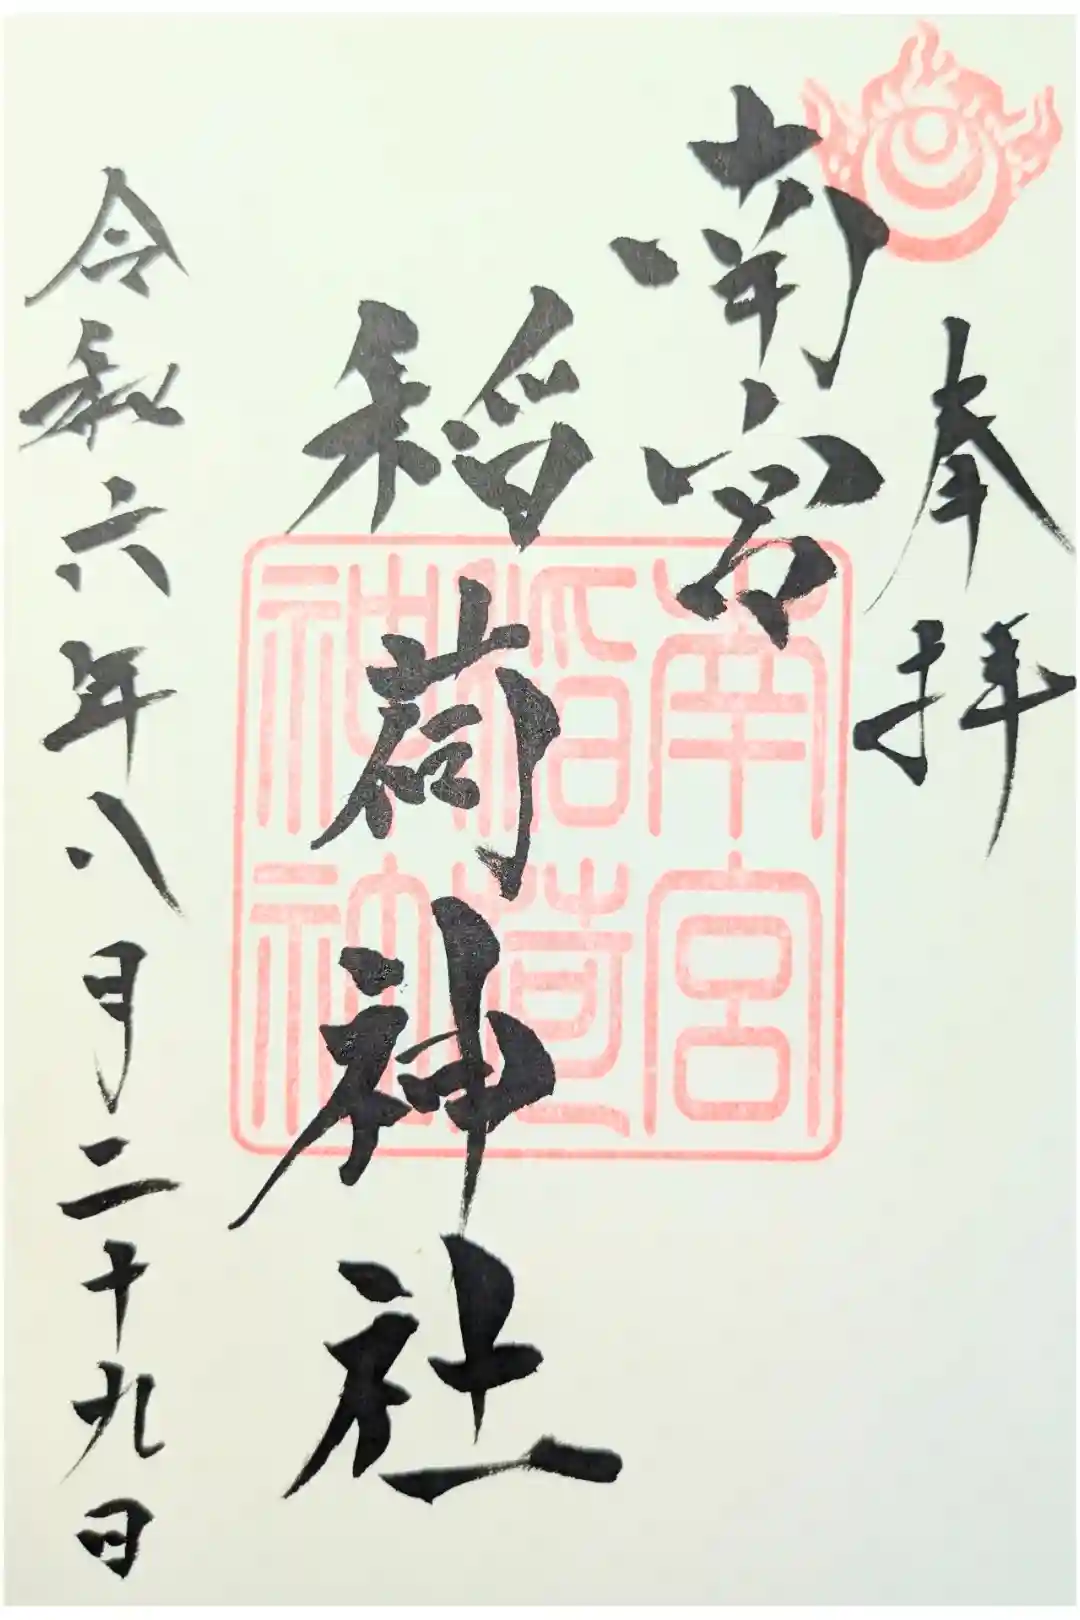 奉拝
南宮
稲荷神社
令和六年八月二十九日
南宮
稲荷
神社